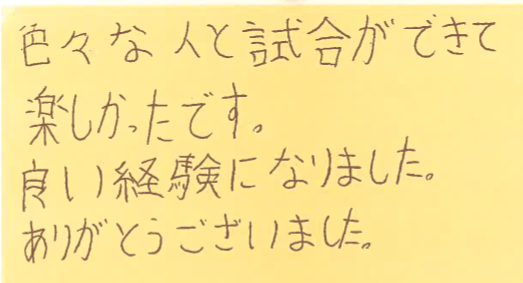 色々な人と試合ができて
楽しかったです。
良い経験になりました。
ありがとうございました。